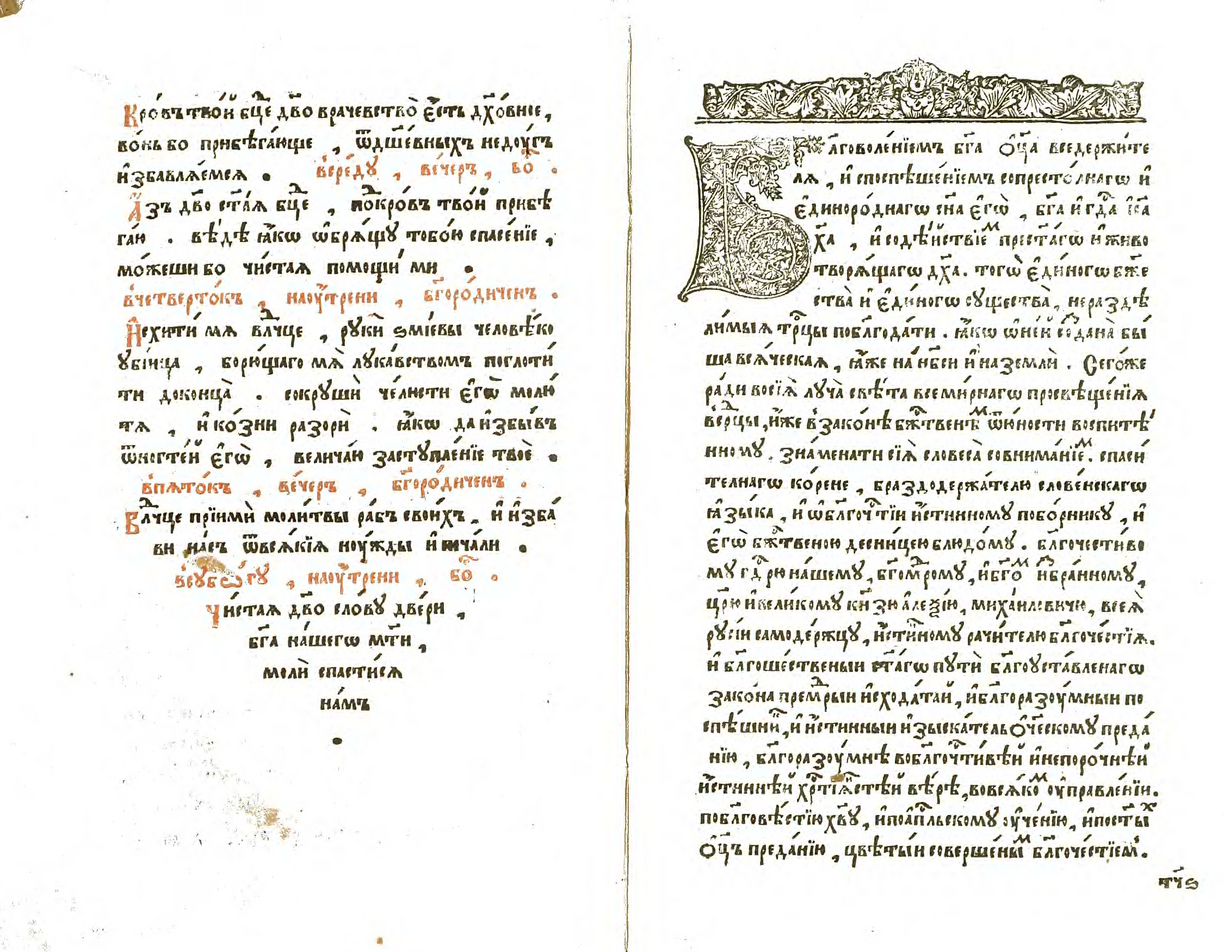 Кро́въ тво́й бц҃е дв҃о врачевство̀ є҆́сть дх҃о́вние,
во́нь бо прибѣга́юще , ѿдш҃е́вныхъ неду́гъ
и҆збавлѧ́емсѧ .  в̾сре́ду , ве́черъ , бо҃ .
А҆́зъ дв҃о ст҃а́ѧ бц҃е , покро́въ тво́й прибѣ
га́ю . вѣ́дѣ ꙗ҆́кѡ ѡ҆брѧ́щꙋ тобо́ю спасе́нїе ,
мо́жеши бо чи́стаѧ помощи́ ми .
в̾четверто́къ , наоу҆́трени , бг҃оро́диченъ .
И҆схити́ мѧ вл҃чце , рꙋки́ ѕмїевы человѣко
ꙋбі́ица , борю́щаго мѧ̀ лꙋка́вствомъ поглоти́
ти доконца̀ . сокрꙋшѝ че́люсти є҆гѡ̀ молю́
тѧ , и҆ ко́зни разорѝ . ꙗ҆́кѡ да и҆збы́въ
ѿногте́й є҆гѡ̀ , велича́ю застꙋпле́нїе твоѐ .
в̾пѧто́къ , ве́черъ , бг҃оро́диченъ .
Вл҃чце прїимѝ моли́твы ра́бъ свои́хъ , и҆ и҆зба́
ви на́съ ѿвсѧ́кїѧ ноу́жды и҆ печа́ли .
в̾сꙋбѡ́тꙋ , наоу҆́трени , бо҃ .
Чи́стаѧ дв҃о сло́вꙋ две́ри ,
бг҃а на́шегѡ мт҃и ,
молѝ спасти́сѧ
на́мъ
.
Благоволе́нїемъ бг҃а ѻ҆ц҃а̀ вседержи́те
лѧ , и҆ споспѣше́нїемъ сопресто́лнагѡ и҆
є҆диноро́днагѡ сн҃а є҆гѡ̀ , бг҃а и҆ гд҃а і҆с҃а
х҃а , и҆ содѣ́йствїем прест҃а́гѡ и҆ живо
творѧ́щагѡ дх҃а . тогѡ̀ є҆ди́ногѡ бж҃е
ства̀ и҆ є҆ди́ногѡ сꙋщества̀ , неразdѣ́
ли́мыѧ трⷪ҇цы побл҃года́ти . ꙗ҆́кѡ ѡ҆не́й созданa бы́
ша всѧ́ческаѧ , ꙗ҆́же на нб҃си и҆ на землѝ . Сегѡ́же
ра́ди восїѧ̀ лꙋча̀ свѣ́та всеми́рнагѡ просвѣще́нїѧ
в̾сердцы , и҆́же в̾зако́нѣ бж҃твенѣм ѿю́ности воспитѣ́
нномꙋ . зна́менати сїѧ̀ словеса̀ совнима́нїем . спаси́
телнагѡ ко́рене , браздодержа́телю слове́нскагѡ
ꙗ҆зы́ка , и҆ ѡ҆бл҃гоч҇тїи и҆́стинномꙋ побо́рникꙋ , и҆
є҆гѡ̀ бж҃твеною десни́цею блюдо́мꙋ . бл҃гочести́во
мꙋ гдⷭ҇рю на́шемꙋ , бг҃омꙋ́дромꙋ , и҆ бг҃ом и҆збра́нномꙋ ,
цр҃ю̀ и҆ вели́комꙋ кн҃зю а҆леѯі́ю , миха́иловичю , всеѧ̀
рꙋсі́и самоде́ржцꙋ , и҆́стинномꙋ рачи́телю бл҃гоче́стїѧ .
и҆ бл҃гоше́ственыи ст҃а́гѡ пꙋтѝ бл҃гоꙋста́вленагѡ
зако́на премꙋ́дрыи и҆схода́тай , и҆ бл҃горазоу́мныи по
спѣ́шникъ , и҆ и҆́стинныи и҆зыска́тель ѻ҆те́ческомꙋ преда́
нїю , бл҃горазоу́мнѣ вобл҃гочⷭ҇ти́вѣй и҆ непоро́чнѣй
и҆́стиннѣй хрⷭ҇тїа́нстѣй вѣ́рѣ , вовсѧ́ком оу҆правле́нїи .
побл҃говѣ́стїю хв҃ꙋ , и҆ поа҆пⷭ҇льскомꙋ оу҆че́нїю , и҆ пост҃ы́х
ѻ҆ц҃ъ преда́нїю , цвѣты́и соверше́ным бл҃гоче́стїем .
тч҃ѕ